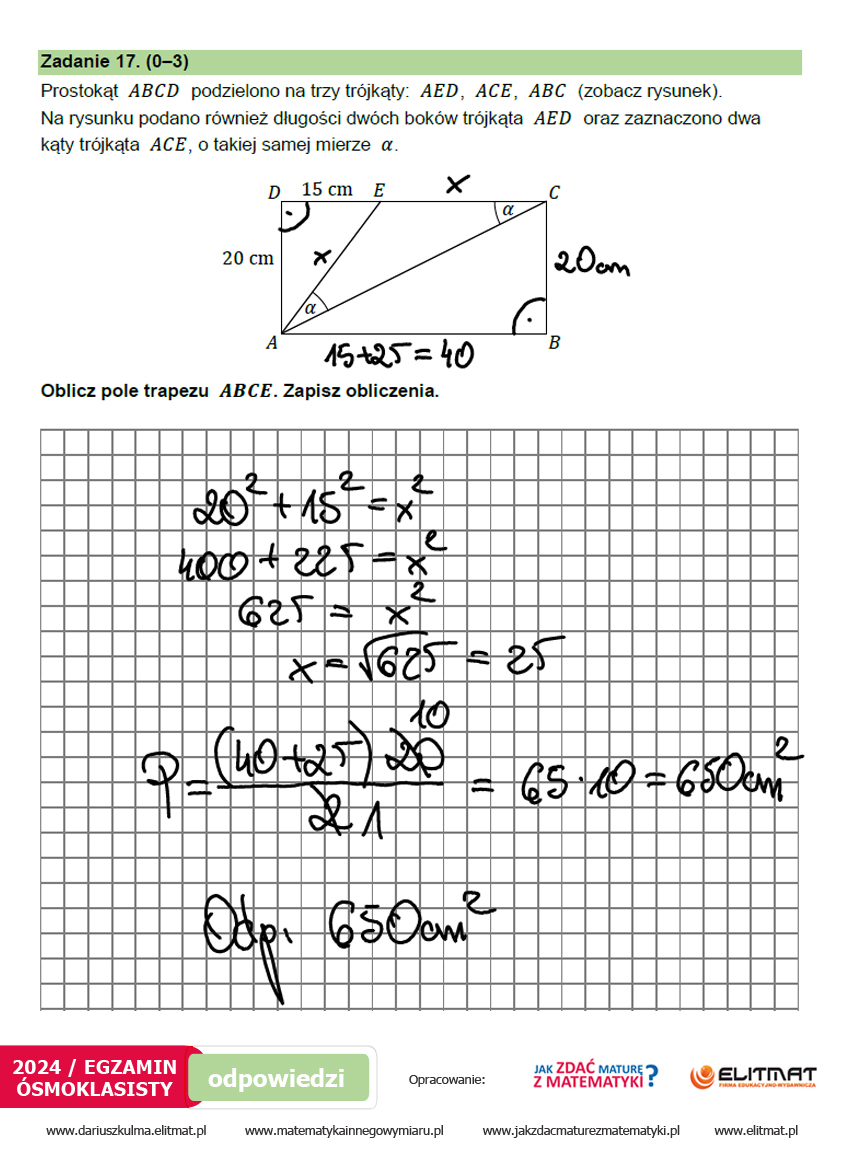 Zadanie 17. (0–3)
Prostokąt ABCD podzielono na trzy trójkąty: AED, ACE, ABC (zobacz rysunek).
Na rysunku podano również długości dwóch boków trójkąta AED oraz zaznaczono dwa
kąty trójkąta ACE, o takiej samej mierze α.
D 15 cm E x C
α
20 cm x 20cm
α
A 15+25=40 B
Oblicz pole trapezu ABCE. Zapisz obliczenia.
20² + 15² = x²
400 + 225 = x²
625 = x²
x = √625 = 25
10
P = (40+25) 20 / 2 1 = 65·10 = 650cm²
Odp. 650cm²
2024 / EGZAMIN
ÓSMOKLASISTY
odpowiedzi
Opracowanie:
JAK ZDAĆ MATURĘ
Z MATEMATYKI?
ELITMAT
FIRMA EDUKACYJNO-WYDAWNICZA
www.dariuszkulma.elitmat.pl www.matematykainnegowymiaru.pl www.jakzdacmaturezmatematyki.pl www.elitmat.pl